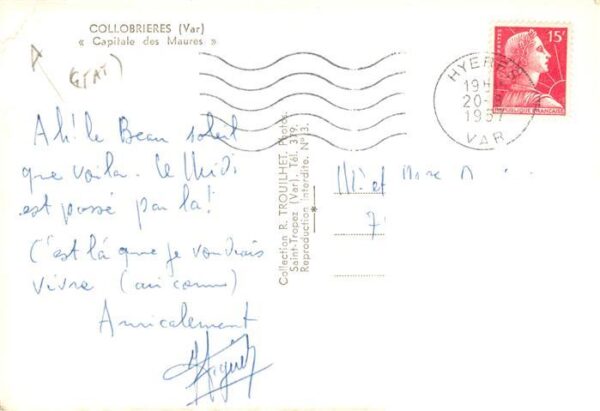 COLLOBRIERES (Var)
« Capitale des Maures »
(ETAT)
Ah! le Beau soleil
que voila. Le Midi
est passé par la!
C'est là que je voudrais
vivre (
Amicalement
Collection R. TROUILHET, Photos.
Saint-Tropez (Var), Tél. 319.
Reproduction interdite. N° 13.
POSTES
15F
REPUBLIQUE FRANÇAISE
HYERES
19H
20-
1957
VAR
M. et Mme
7